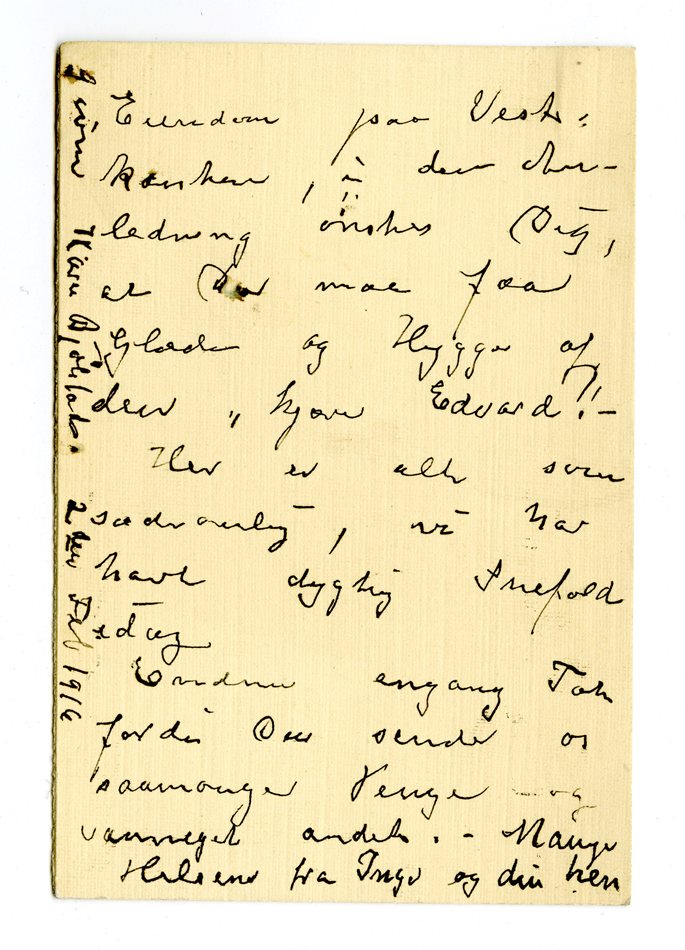 Eiendom paa Vest-
kanten, i den An-
ledning ønskes Dig,
at Du maa faa
Glæde og Hygge af
den, kjære Edvard!! –
Her er alt som
sædvanlig, vi har
havt dygtig Snefold
idag
Endnu engang Tak
fordi Du sender os
saamange Penge og
saameget andet. – Mange
Hilsener fra Inga og din hen
2den Feb 1916